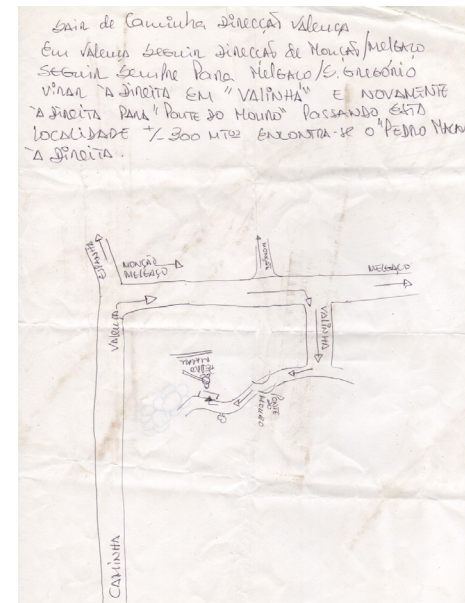 Sair de Caminha Direcção Valença
Em Valença seguir Direcção de Monção/Melgaço
SEGUIR SEMPRE PARA MELGAÇO/S. GREGÓRIO
VIRAR À DIREITA EM "VALINHA" E NOVAMENTE
À DIREITA PARA "PONTE DO MOURO" PASSANDO ESTA
LOCALIDADE +/- 300 MTOS ENCONTRA-SE O "PEDRO MACAU"
À DIREITA.
ESPANHA
MONÇÃO
MELGAÇO
MONÇÃO
MELGAÇO
VALENÇA
VALINHA
PEDRO
MACAU
PONTE
DO
MOURO
CAMINHA